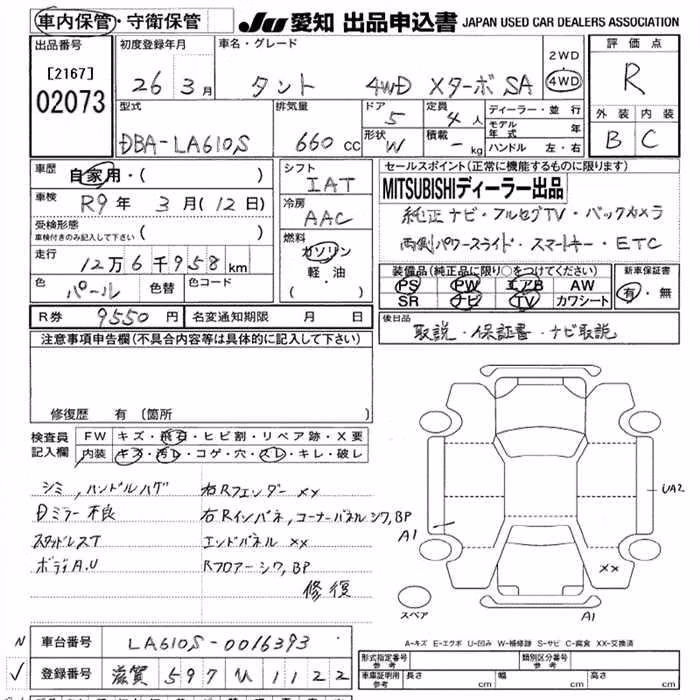 車内保管・守衛保管 JU 愛知 出品申込書 JAPAN USED CAR DEALERS ASSOCIATION
出品番号 初度登録年月 車名・グレード 2WD 評価点
[2167] 02073 26 3月 タント 4WD XターボSA 4WD R
型式 排気量 ドア 定員 ディーラー・並行 外装 内装
DBA-LA610S 660cc 5 4人 モデル年式 年 B C
形状 W 積載 - kg ハンドル 左・右
車歴 自家用・( ) シフト セールスポイント(正常に機能するものに限ります)
車検 R9年3月(12日) IAT MITSUBISHIディーラー出品
受検形態 冷房 純正ナビ・フルセグTV・バックカメラ
車検付きのみ記入して下さい ( ) AAC 両側パワースライド・スマートキー・ETC
走行 12万6千958km 燃料 ガソリン 装備品(純正品に限り○をつけてください) 新車保証書
色 パール 色替 色コード 軽・油 PS PW エアB AW 有・無
・( ) SR ナビ TV カワシート
R券 9550円 名変通知期限 月 日 後日品
取説・保証書・ナビ取説
注意事項申告欄(不具合内容等は具体的に記入して下さい)
修復歴 有(箇所
検査員 FW キズ・飛石・ヒビ割・リペア跡・X要
記入欄 内装 キズ・汚レ・コゲ・穴・スレ・キレ・破レ
シミ,ハンドルハゲ 右Rフェンダー XX UA2
Dミラー不良 右Rインパネ,コーナーパネルシワ,BP A1
スタッドレスT エンドパネル XX
ボディA.U Rフロアーシワ,BP XX
修復
スペア A1
A-キズ E-エクボ U-凹み W-補修跡 S-サビ C-腐食 XX-交換済
N 車台番号 LA610S-0016393 形式指定番号 参考 類別区分番号 参考
✓ 登録番号 滋賀 597 ひ 1122 車庫証明用 参考 長さ cm 幅 cm 高さ cm